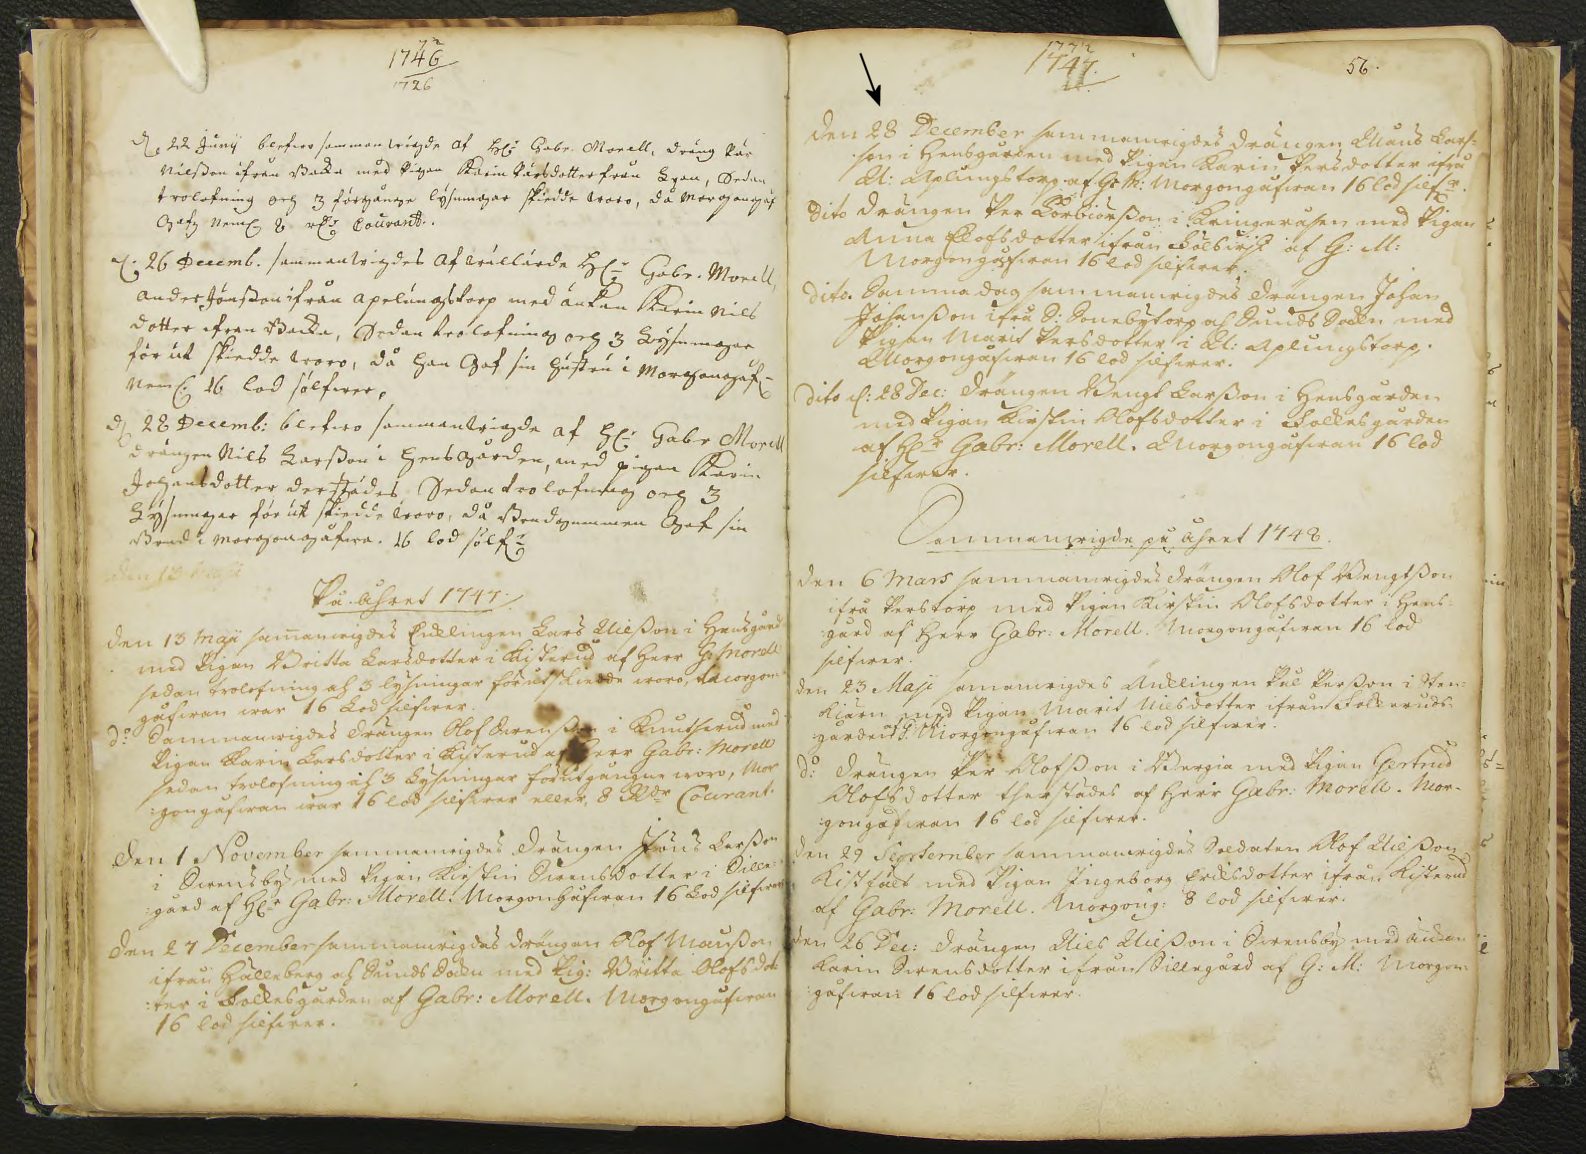 1746
1726
d. 22 Junij blefwo sammanwigde af H:r Gabr. Morell, dräng Pär
Nilsson ifrån Backa med Pigan Karin Larsdotter från
trolofning och 3 förgångne lysningar skiedde woro, då Morgongåf
Gafs Neml. 8 Courant.
d. 26 Decemb. sammanwigdes af wällärde H:r Gabr. Morell,
Anders Jönsson ifrån Apelungstorp med änkan Karin Nils
dotter ifrån Backa, Sedan trolofning och 3 Lysningar
förut skiedde woro, då han Gaf sin hustru i Morgongåf
Neml. 16 lod sölfwer.
d. 28 Decemb: blefwo sammanwigde af H:r Gabr Morell
drängen Nils Larsson i Hensgården, med pigan Karin
Johansdotter derstädes. Sedan trolofning och 3
Lysningar förut skiedde woro, då Brudgummen Gaf sin
Brud i Morgongåfwa. 16 lod sölf:r
den 13 Maji
På Ahret 1747.
den 13 Maji sammanwigdes Enklingen Lars Nilsson i Hensgård
med Pigan Britta Larsdotter i Kisterud af Herr G: Morell
sedan trolofning ok 3 lysningar förut skiedde woro, Morgon-
gåfwan war 16 Lod silfwer.
d:o Sammanwigdes drängen Olof Swensson i Knutserud med
Pigan Karin Larsdotter i Kisterud af Herr Gabr: Morell
sedan trolofning ok 3 Lysningar förutgångne woro, Mor
gongåfwan war 16 lod silfwer eller 8 Rdr Courant.
Den 1 November sammanwigdes Drängen Jöns Larsson
i Swensby med Pigan Kirstin Swensdotter i Sille-
gård af H:r Gabr: Morell. Morgongåfwan 16 Lod silfwer
Den 27 December sammanwigdes Drängen Olof Månsson
ifrån Hälleberg ok Sunds Sokn med Pig: Britta Olofsdot-
ter i Follesgården af Gabr: Morell. Morgongåfwan
16 lod silfwer.
1747.
56.
Den 28 December sammanwigdes Drängen Måns Lars-
son i Hensgården med Pigan Karin Persdotter ifrå
N: Aplungstorp af G: M: Morgongåfwan 16 lod silf:r.
Dito Drängen Per Torbiörsson i Kringeråsen med Pigan
Anna Olofsdotter ifrån af G: M:
Morgongåfwan 16 lod silfwer.
Dito. Samma dag sammanwigdes Drängen Johan
Johansson ifrå S: Sonebytorp ok Sunds Sokn med
Pigan Marit Persdotter i N: Aplungstorp.
Morgongåfwan 16 lod silfwer.
Dito d: 28 Dec: Drängen Bengt Larsson i Hensgården
med Pigan Kirstin Olofsdotter i Follesgården
af H:r Gabr: Morell. Morgongåfwan 16 lod
silfwer.
Sammanwigde på Åhret 1748.
Den 6 Mars sammanwigdes Drängen Olof Bengtsson
ifrå Perstorp med Pigan Kirstin Olofsdotter i Hens-
gård af Herr Gabr: Morell. Morgongåfwan 16 lod
silfwer.
Den 23 Maji samanwigdes Änklingen Pål Persson i Sten-
kiärn med Pigan Marit Nilsdotter ifrån Folleruds-
gården af G: M: Morgongåfwan 16 lod silfwer.
d:o Drängen Per Olofsson i Bergia med Pigan Gertrud
Olofsdotter therstädes af Herr Gabr: Morell. Mor-
gongåfwan 16 lod silfwer.
Den 29 September sammanwigdes Soldaten Olof Nilsson
Kistfält med Pigan Ingeborg Ericsdotter ifrån Kisterud
af Gabr: Morell. Morgong: 8 lod silfwer.
Den 26 Dec: Drängen Nils Nilsson i Swensby med änkan
Karin Swensdotter ifrån Sillegård af G: M: Morgon-
gåfwan 16 lod silfwer.